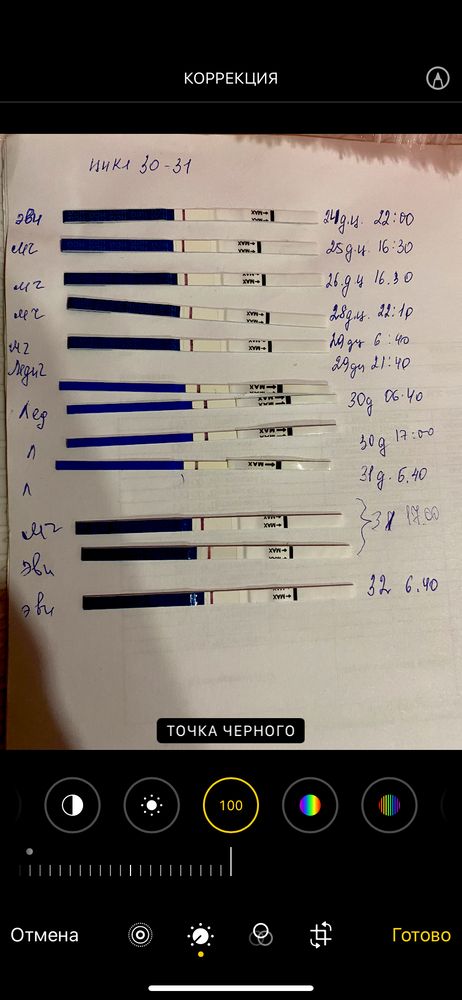 КОРРЕКЦИЯ
цикл 30-31
эви 24д.ц. 22:00
мч 25д.ц. 16:30
мч 26д.ц 16.30
мч 28д.ц. 22:10
мч 29дц 6:40
Ледич 29дц 21:40
Лед 30д 06.40
Л 30д 17:00
Л 31д. 6.40
мч 31 17.00
эви
эви 32 6.40
MAX
MAX
MAX
MAX
MAX
MAX
MAX
MAX
MAX
MAX
MAX
MAX
ТОЧКА ЧЕРНОГО
100
Отмена
Готово